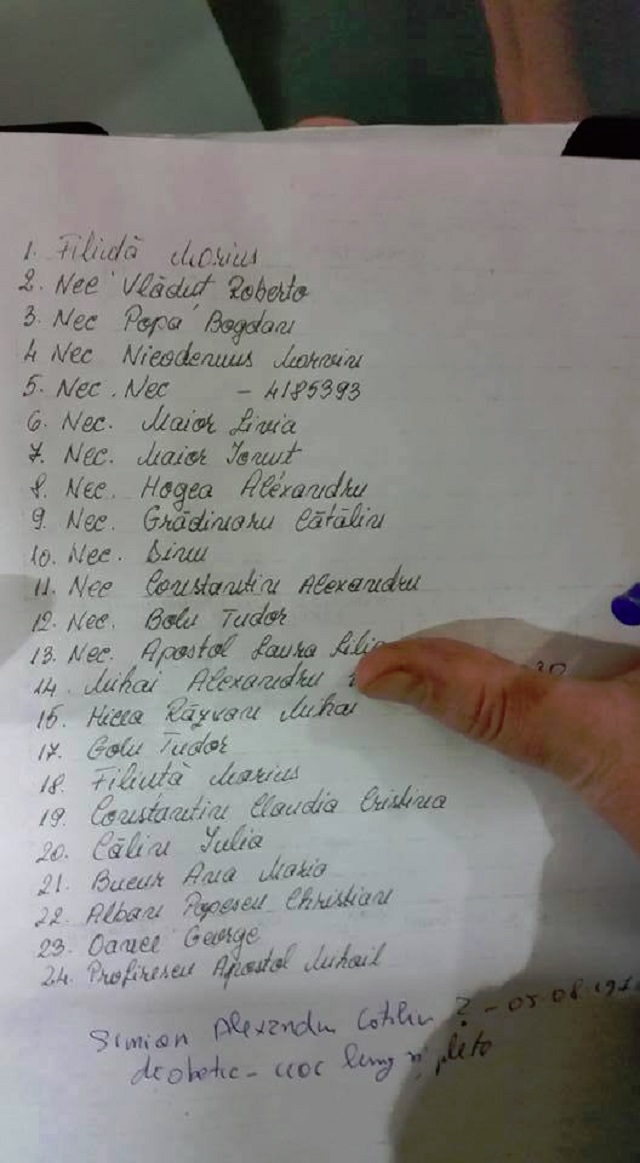 1. Filiută Marius
2. Nec Vlăduț Roberto
3. Nec Popa Bogdan
4 Nec Nicodemus Marvin
5. Nec. Nec - 4185393
6. Nec. Maior Livia
7. Nec. Maior Ionuț
8. Nec. Hogea Alexandru
9. Nec. Grădinaru Cătălin
10. Nec. Dinu
11. Nec Constantin Alexandru
12. Nec. Bolu Tudor
13. Nec. Apostol Laura
14. Mihai Alexandru
15. Răzvan Mihai
17. Golu Tudor
18. Filiuță Marius
19. Constantin Claudia Cristina
20. Călin Iulia
21. Bucur Ana Maria
22. Alban Popescu Christian
23. George
24. Profirescu Apostol Mihail
Simion Alexandru ? - 05.08
diabetic - lung și